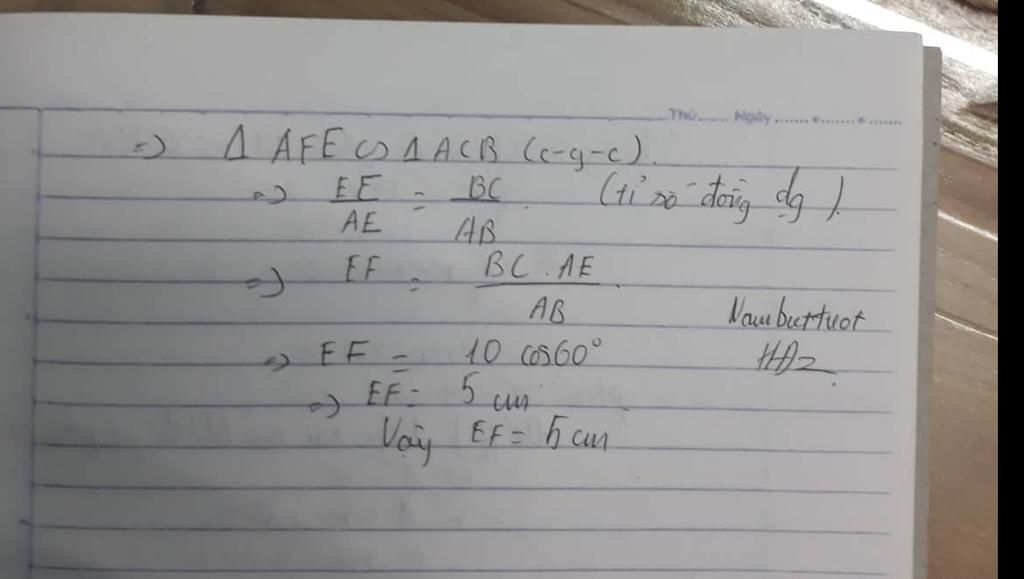 Thứ...... Ngày...............
=> Δ AFE ∽ Δ ACB (c-g-c).
=> EE/AE = BC/AB. (tỉ số đồng dg).
=> EF = BC.AE/AB.
Nambuttuot
=> EF = 10 cos60°
HA2.
=> EF = 5 cm
Vậy EF = 5 cm